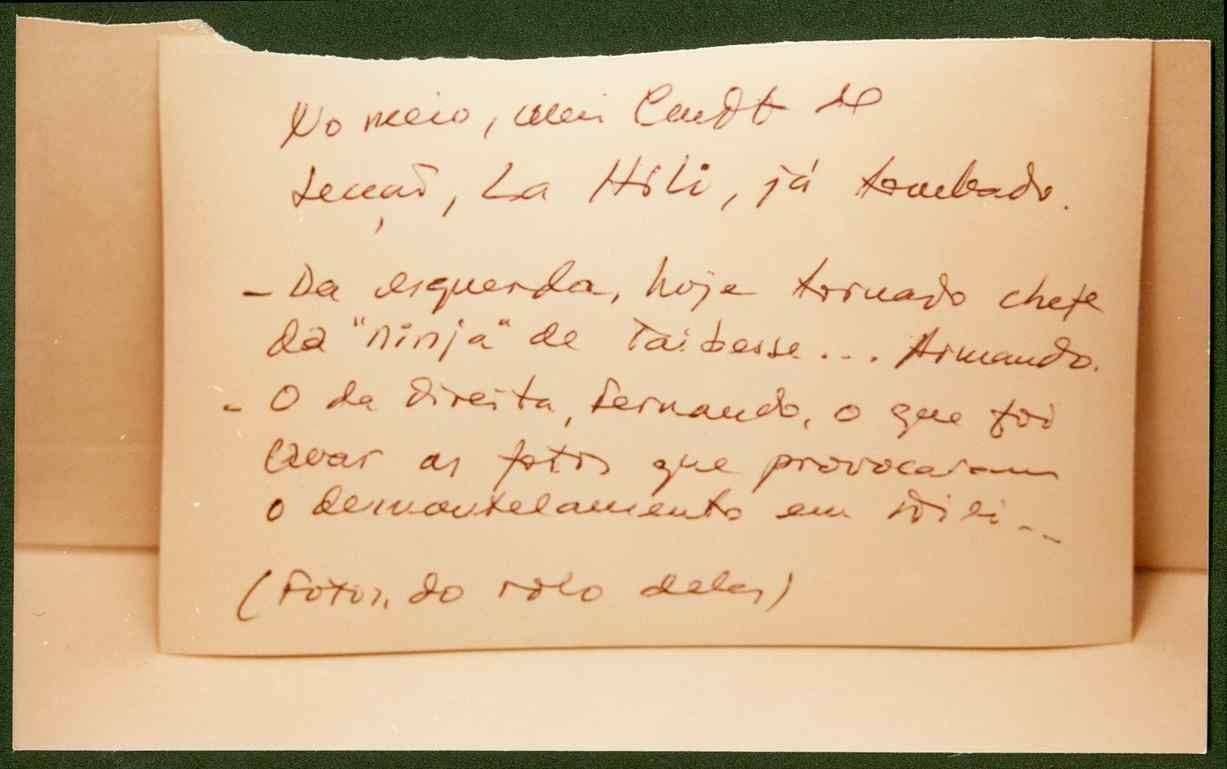 No meio, um Cmdt de
secção, La Hili, já tombado.
- Da esquerda, hoje tornado chefe
da "ninja" de Taibesse... Armando.
- O da direita, Fernando, o que foi
levar as fotos que provocaram
o desmantelamento em
(Fotos, do rolo deles)